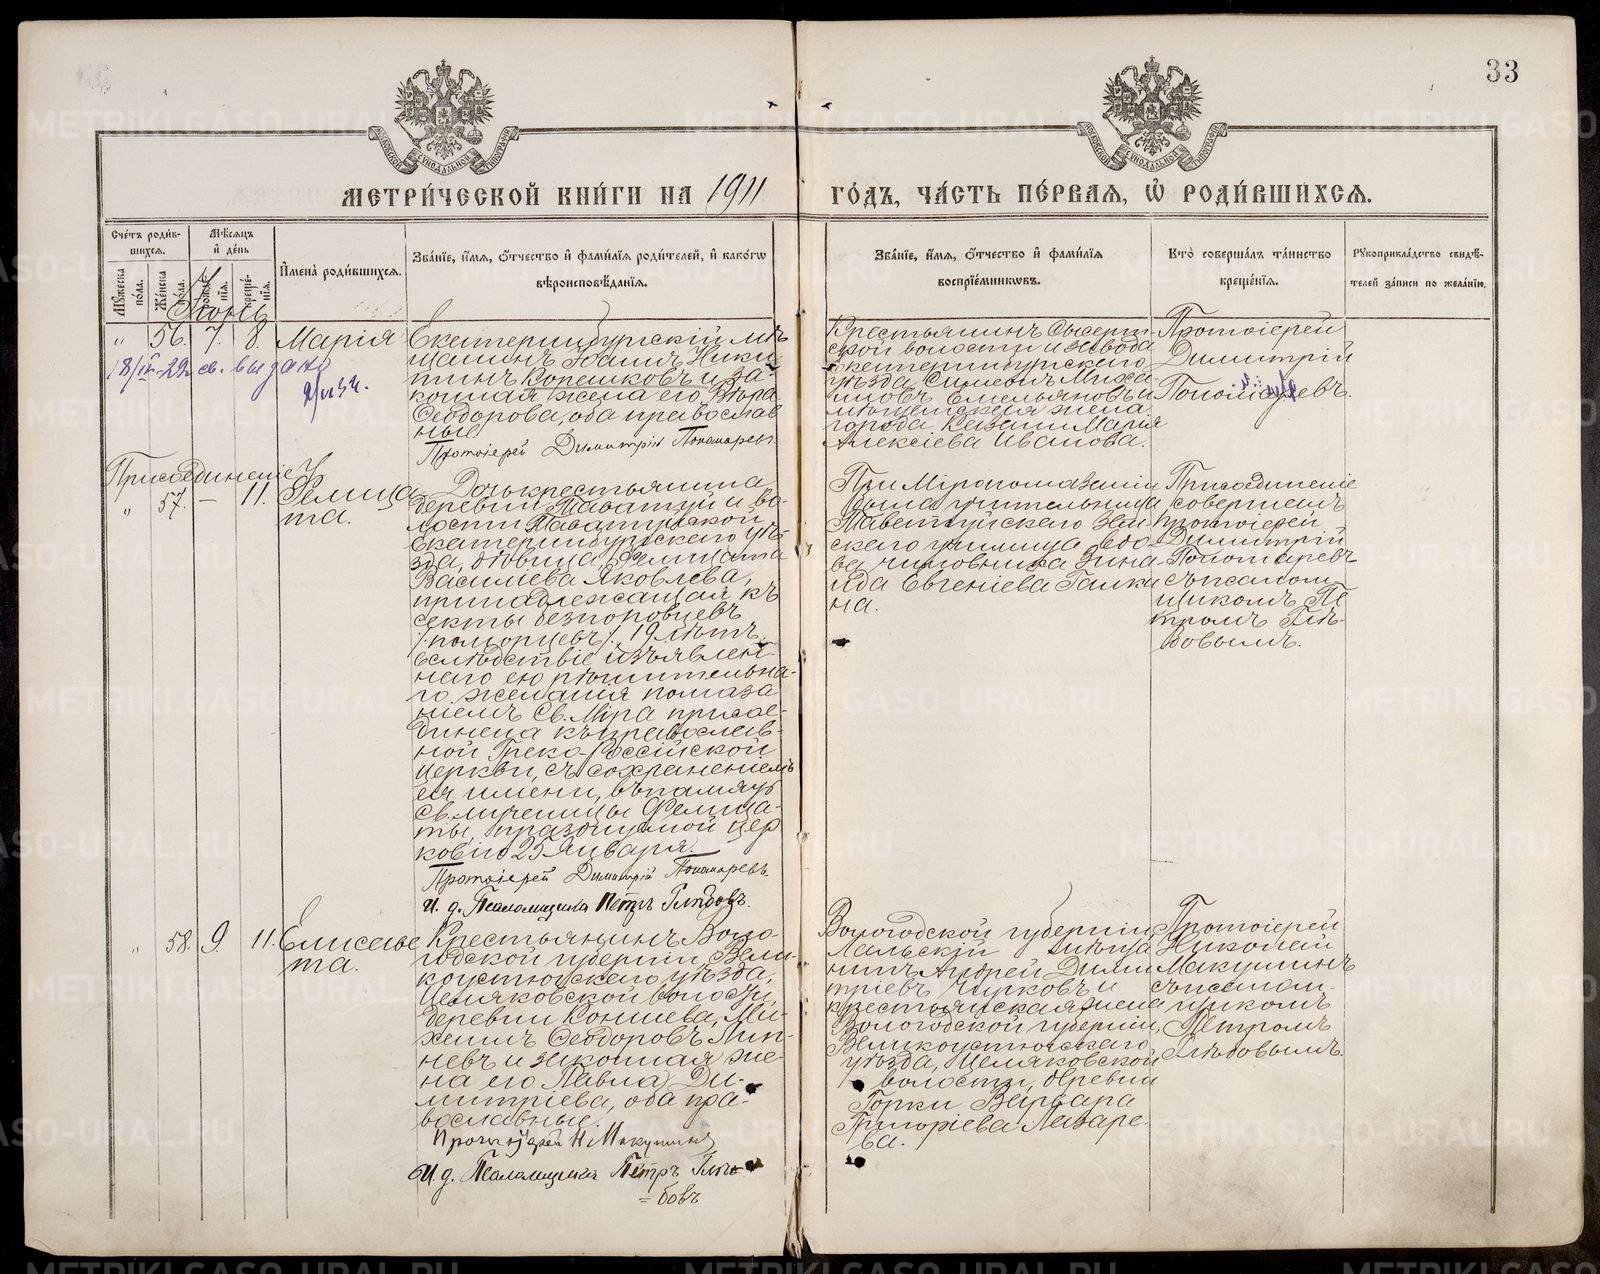 33
МОСКОВСКОЙ СѴНОДАЛЬНОЙ ТИПОГРАФІИ
МОСКОВСКОЙ СѴНОДАЛЬНОЙ ТИПОГРАФІИ
МЕТРИ́ЧЕСКОЙ КНИ́ГИ НА 1911
ГО́ДЪ, ЧА́СТЬ ПЕ́РВАЯ, Ѡ҆ РОДИ́ВШИХСЯ.
Сче́тъ роди́в-
шихся.
Мꙋ́жеска по́ла.
Же́нска по́ла.
Мѣ́сяцъ
и҆ де́нь
рожде́-
нія.
креще́-
нія.
И҆мена̀ роди́вшихся.
Зва́нїе, и҆́мя, ѻ҆́тчество и҆ фами́лїя роди́телей, и҆ како́гѡ
вѣроисповѣ́данїя.
Зва́нїе, и҆́мя, ѻ҆́тчество и҆ фами́лїя
воспрїе́мникѡвъ.
Кто̀ соверша́лъ та́инство
креще́нїя.
Рꙋкоприкла́дство свидѣ́-
телей за́писи по жела́нїю.
Іюнь
„ 56. 7. 8. Марія
18/IV-29г св. выдано
Екатеринбургскій мѣ-
щанинъ Іоаннъ Ники-
тинъ Корешковъ и за-
конная жена его Вѣра
Ѳеодорова, оба православ
ные
Протоіерей Димитрій Пономаревъ.
Крестьянинъ Сысерт-
ской волости и завода
Екатеринбургскаго
уѣзда Симеонъ Миха
иловъ Емельяновъ и
мѣщанская жена
города Казани Марія
Алексіева Иванова.
Протоіерей
Димитрій
Пономаревъ.
Присоединеніе
„ 57. — 11. Фелица
та.
Дочь крестьянина
деревни Таватуй и во-
лости Таватуйской
Екатеринбургскаго уѣ-
зда, дѣвица Фелицата
Васильева Яковлева,
принадлежащая къ
секты безпоповцевъ
/поморцевъ/, 19 лѣтъ
вслѣдствіе изъявлен-
наго ею рѣшительна-
го желанія помаза
ніемъ Св. Мѵра присое-
динена къ православ-
ной Греко-Россійской
церкви, съ сохраненіемъ
ея имени, въ память
Св. мученицы Фелица-
ты, празднуемой цер
ковію 25 Января.
Протоіерей Димитрій Пономаревъ.
И. д. Псаломщика Петръ Глѣбовъ.
При Мѵропомазаніи
была учительница
Таватуйскаго Зем
скаго училища вдо-
ва чиновника Зина-
ида Евгеніева Галки
на.
Присоединеніе
совершилъ
Протоіерей
Димитрій
Пономаревъ
съ псалом
щикомъ Пе
тромъ Глѣ-
бовымъ.
„ 58. 9. 11. Елисаве
та.
Крестьянинъ Воло-
годской губерніи, Вели-
коустюгскаго уѣзда,
Целяковской волости,
деревни Коншева, Ми-
хаилъ Ѳеодоровъ Лип-
невъ и законная же-
на его Павла Ди-
митріева, оба пра-
вославные.
Протоіерей Н Макушинъ
И. д. Псаломщика Петръ Глѣ-
=бовъ
Вологодской губерніи
Лальскій мѣща
нинъ Андрей Дими
тріевъ Чурковъ и
крестьянская жена
Вологодской губерніи,
Великоустюгскаго
уѣзда, Целяковской
волости, деревни
Горки Варвара
Григоріева Лазаре-
ва.
Протоіерей
Николай
Макушинъ
съ псалом-
щикомъ
Петромъ
Глѣбовымъ.
METRIKI.GASO-URAL.RU